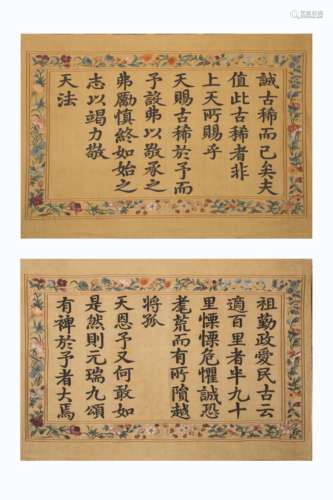 誠古稀而已矣夫
值此古稀者非
上天所賜乎
天賜古稀於予而
予設弗以敬承之
弗勵慎終如始之
志以竭力敬
天法
祖勤政愛民古云
適百里者半九十
里慄慄危懼誠恐
耄荒而有所隕越
將孤
天恩予又何敢如
是然則元瑞九頌
有裨於予者大焉